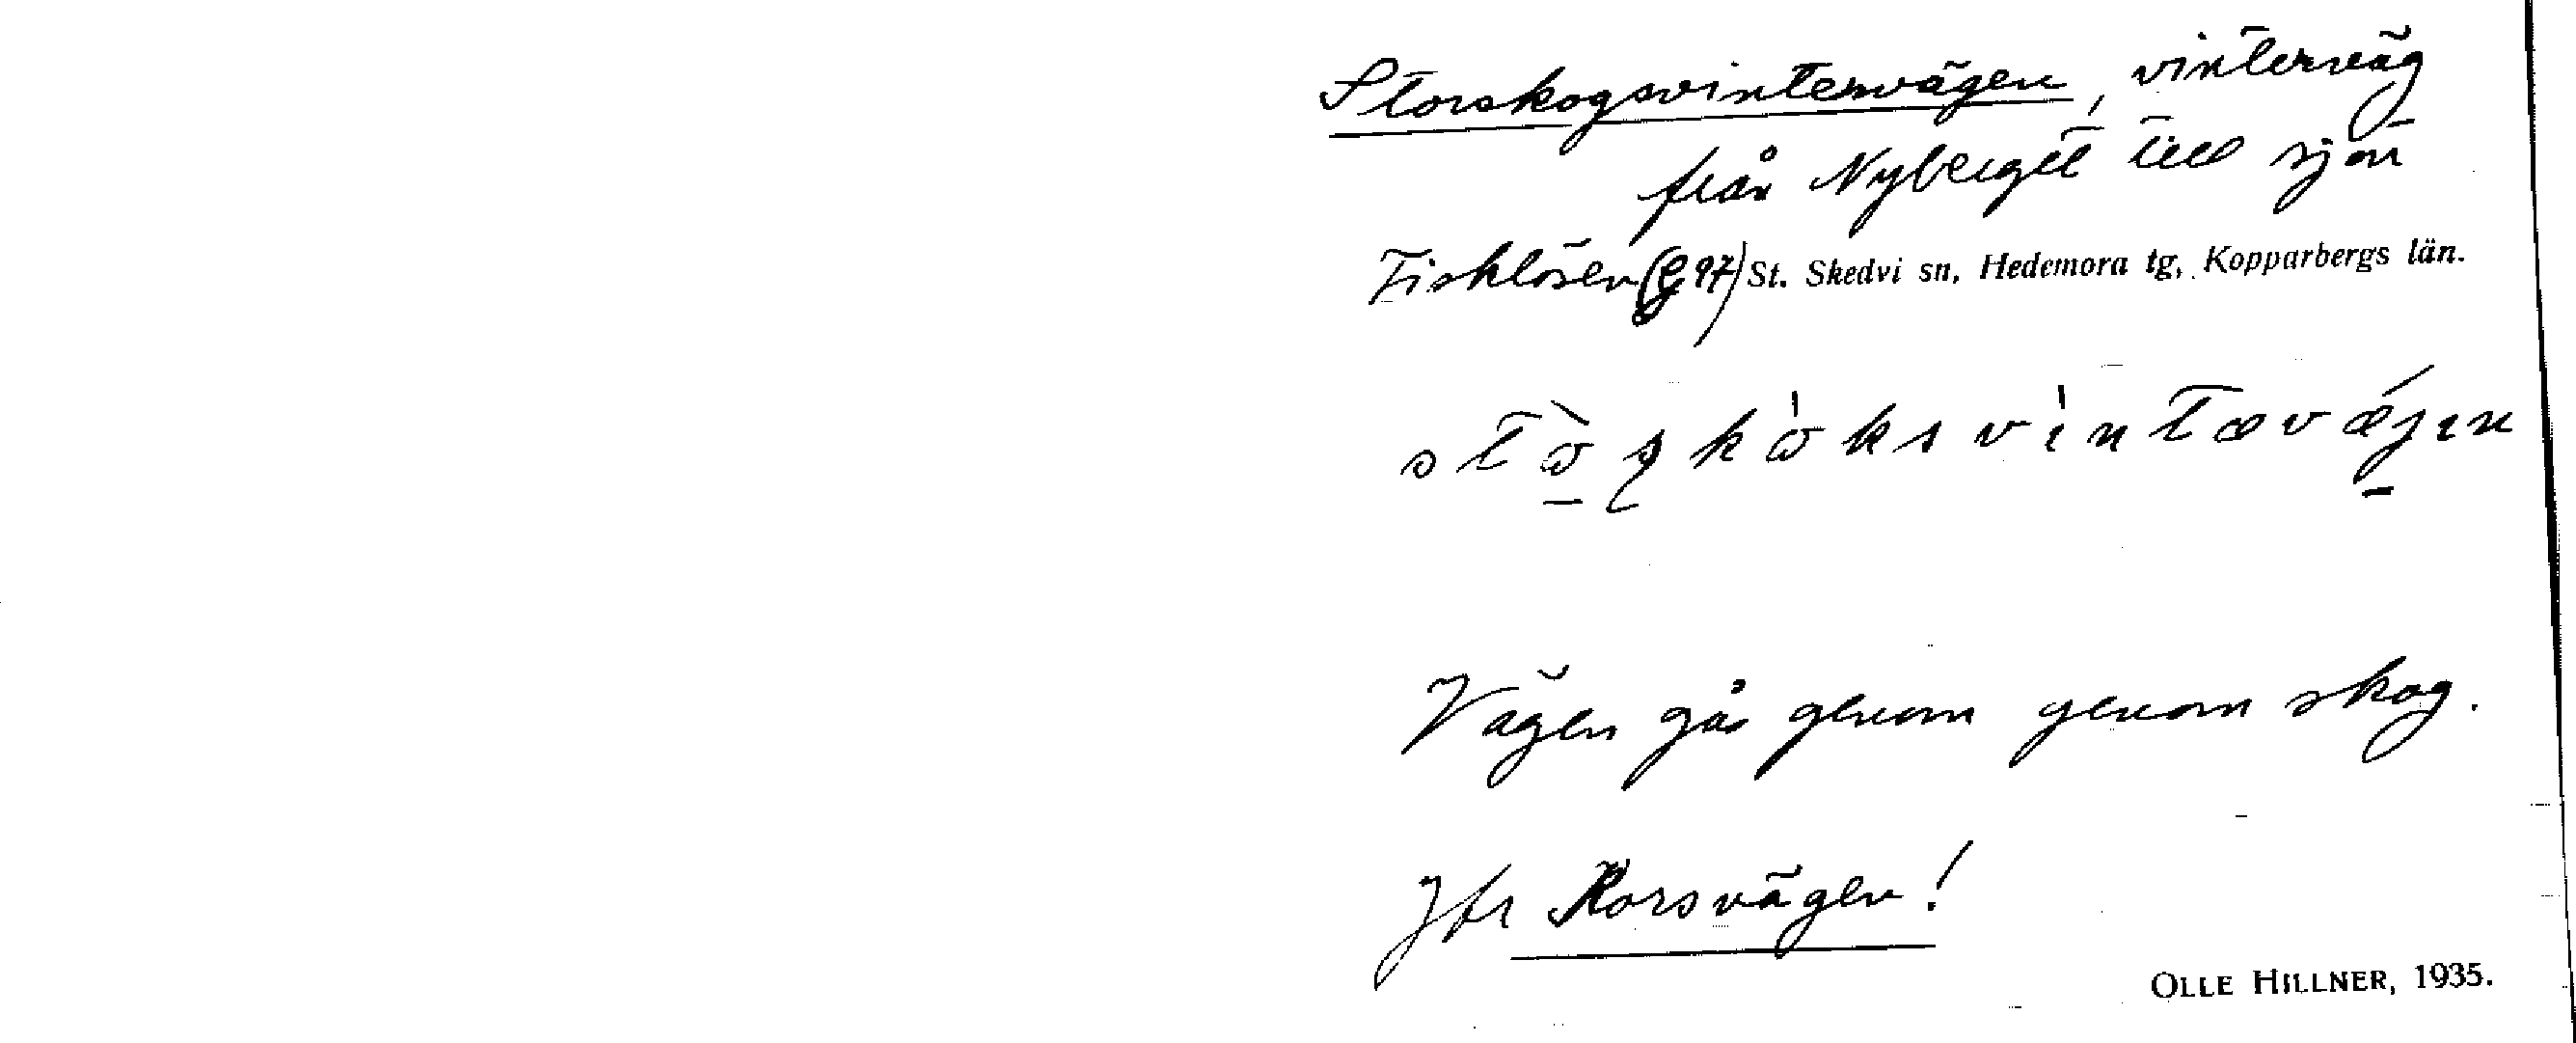 Storskogsvintervägen, vinterväg
från Nyberget till sjön
Fisklösen (G 97) St. Skedvi sn, Hedemora tg, Kopparbergs län.
Vägen går genom genom skog.
Jfr Korsvägen!
OLLE HILLNER, 1935.